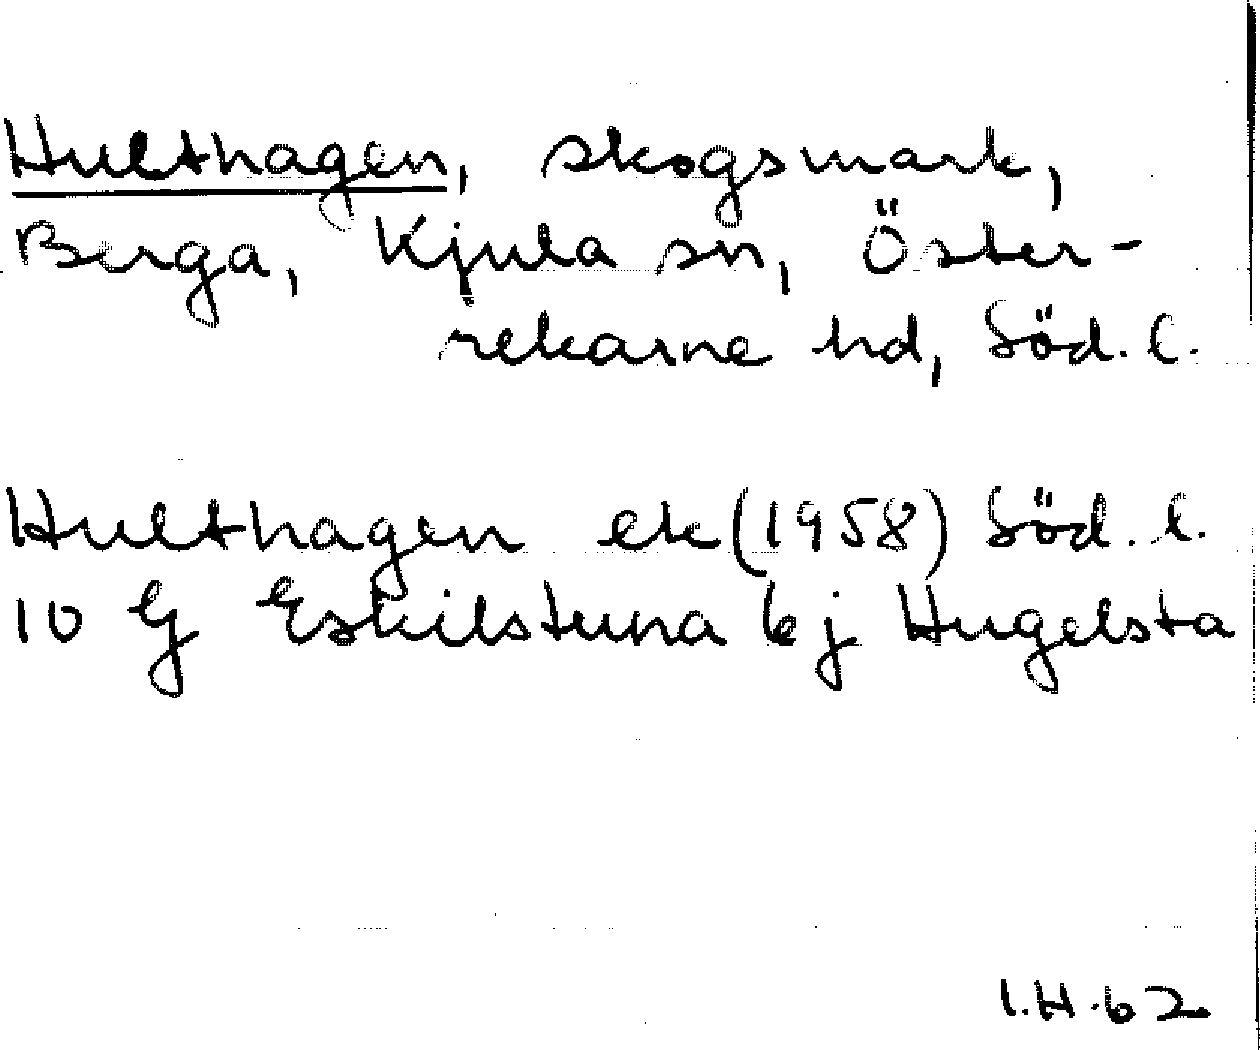 Hulthagen, skogsmark,
Berga, Kjula sn, Öster-
rekarne hd, Söd. l.
Hulthagen ek (1958) Söd. l.
10 G Eskilstuna 6j Hugelsta
I.H. 62